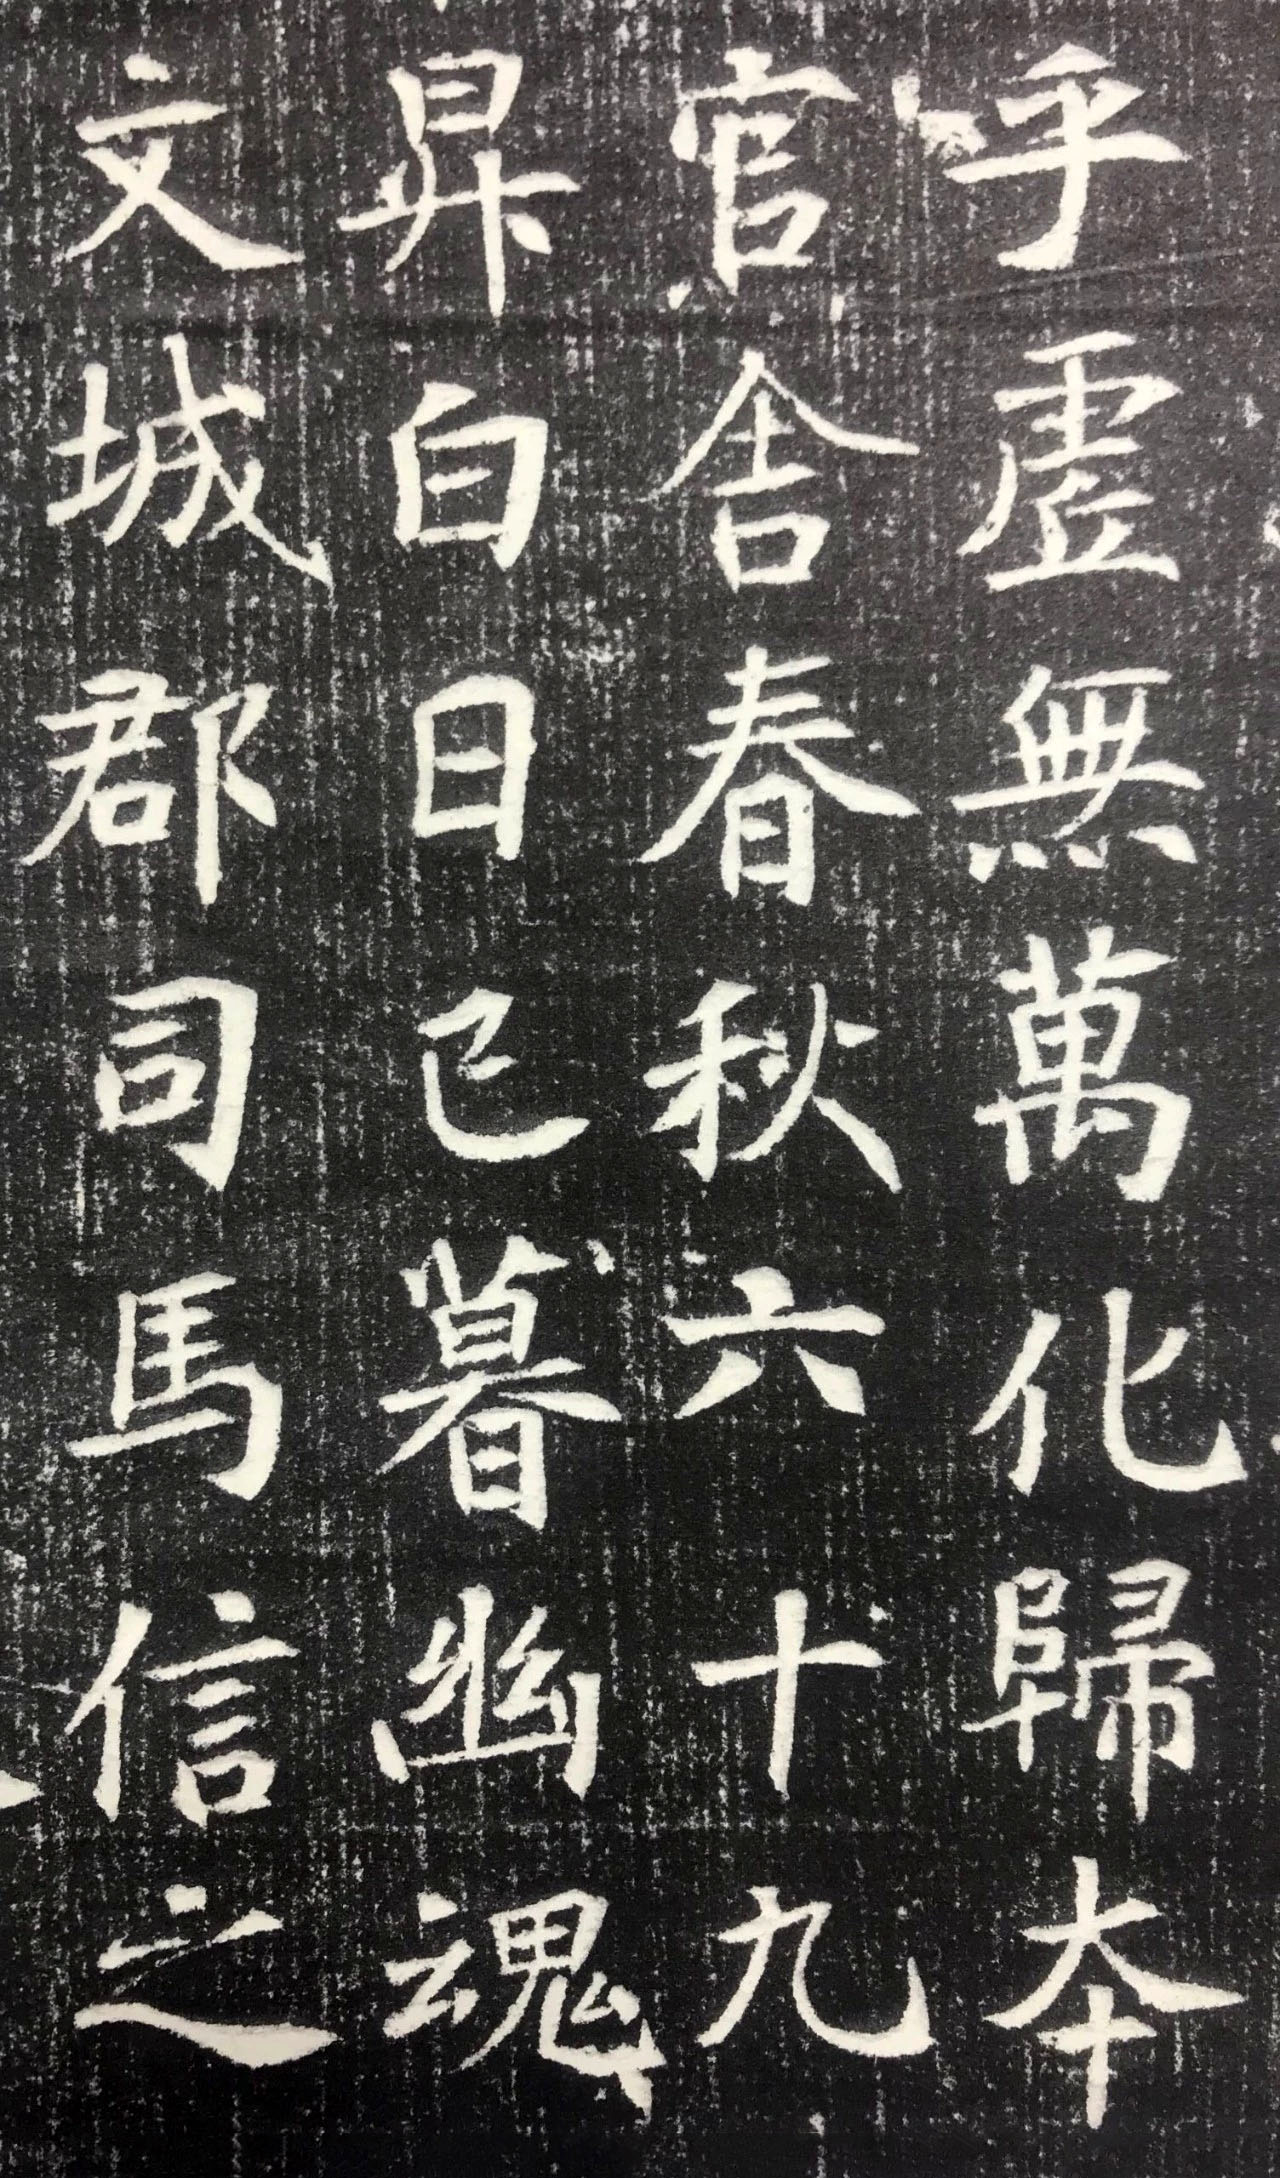 乎虛無萬化歸夲
官舍春秋六十九
昇白日已暮幽魂
文城郡司馬信之